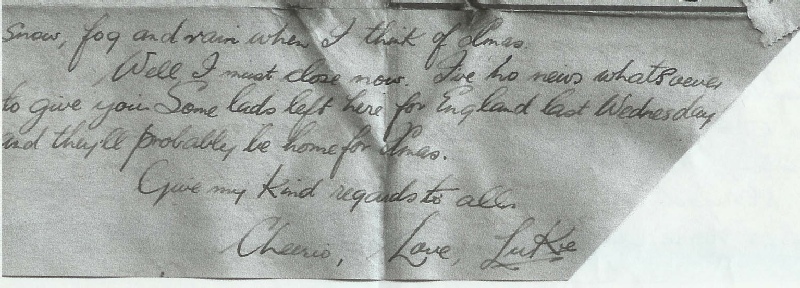 Snow, fog and rain when I think of Xmas.
Well I must close now. I've no news whatsoever
to give you. Some lads left here for England last Wednesday
and they'll probably be home for Xmas.
Give my kind regards to all.
Cheerio, Love, Luke